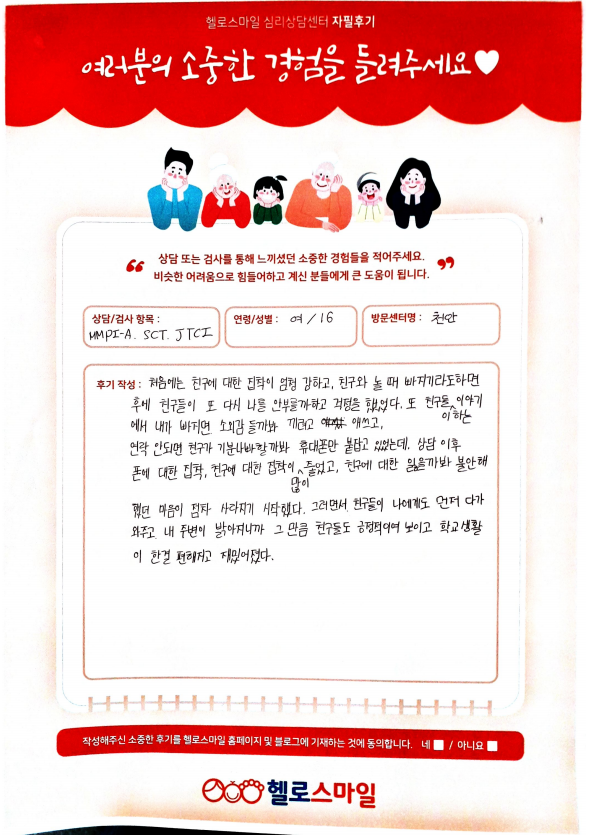 헬로스마일 심리상담센터 자필후기
여러분의 소중한 경험을 들려주세요♥
상담 또는 검사를 통해 느끼셨던 소중한 경험들을 적어주세요.
비슷한 어려움으로 힘들어하고 계신 분들에게 큰 도움이 됩니다.
상담/검사 항목 : MMPI-A. SCT. JTCI
연령/성별 : 여/16
방문센터명 : 천안
후기 작성 : 처음에는 친구에 대한 집착이 엄청 강하고, 친구와 놀 때 빠지기라도하면
후에 친구들이 또 다시 나를 안부를까하고 걱정을 했었다. 또 친구들 이야기
에서 내가 빠지면 소외감 들까봐 끼려고 애쓰고,
이하는
연락 안되면 친구가 기분나빠할까봐 휴대폰만 붙잡고 있었는데, 상담 이후
폰에 대한 집착, 친구에 대한 집착이 줄었고, 친구에 대한 잃을까봐 불안해
많이
했던 마음이 점차 사라지기 시작했다. 그러면서 친구들이 나에게도 먼저 다가
와주고, 내 주변이 밝아지니까 그 만큼 친구들도 긍정적이여 보이고 학교생활
이 한결 편해지고 재밌어졌다.
작성해주신 소중한 후기를 헬로스마일 홈페이지 및 블로그에 기재하는 것에 동의합니다. 네 / 아니요
헬로스마일